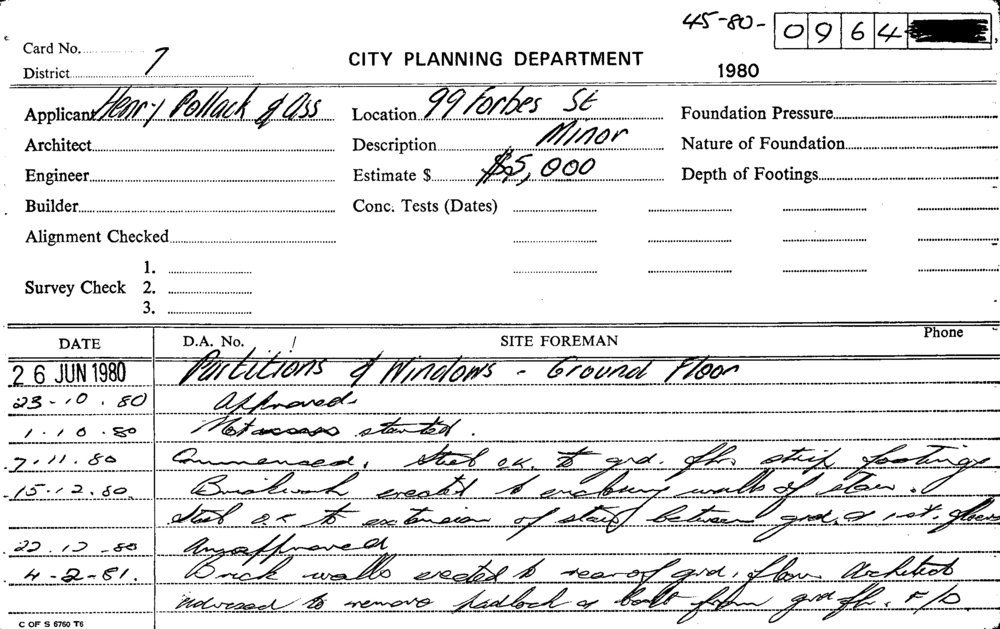 45-80- 0964
Card No.
District 7
CITY PLANNING DEPARTMENT
1980
Applicant Henry Pollack & Ass
Location 99 Forbes St
Foundation Pressure
Architect
Description Minor
Nature of Foundation
Engineer
Estimate $ $5,000
Depth of Footings
Builder
Conc. Tests (Dates)
Alignment Checked
Survey Check 1.
2.
3.
DATE D.A. No. / SITE FOREMAN Phone
26 JUN 1980 Partitions & Windows - Ground Floor
23-10.80 Approved.
1.10.80 Not started.
7.11.80 Commenced. Steel o.k. to grd. flr. strip footings
15.12.80. Brickwork erected to enclosing walls of stair.
Steel o.k to extension of stair between grd. & 1st. floors
22.12.80
4-2-81. Brick walls erected to rear of grd. floor. Architect
advised to remove padlock & bolt from grd flr. F/D.
C OF S 6760 T6